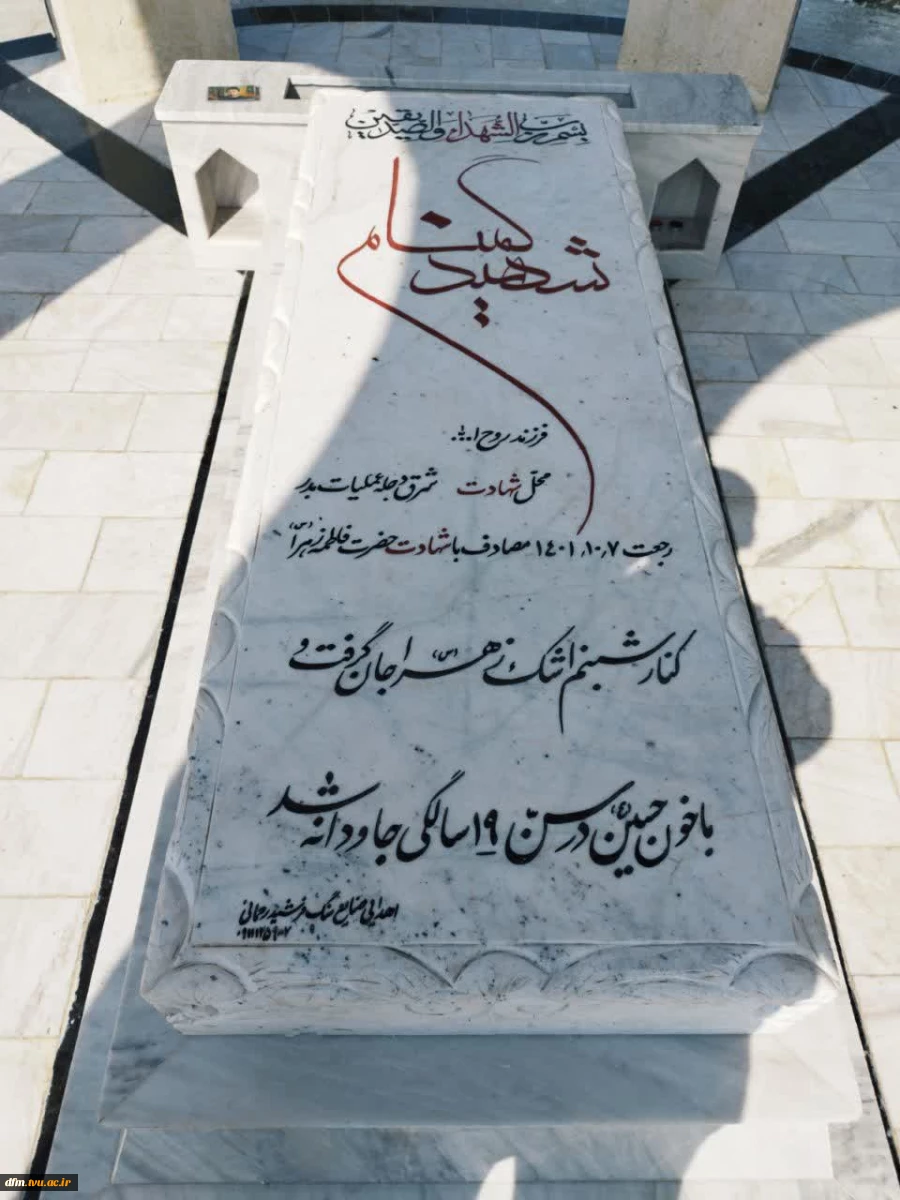 بسم رب الشهداء و الصدیقین
شهید گمنام
فرزند روح ا...
محل شهادت شرق دجله عملیات بدر
رجعت ۱۴۰۱,۱۰,۷ مصادف با شهادت حضرت فاطمه زهرا (س)
کنار شبنم اشک زهرا (س) جان گرفت و
با خون حسین (ع) در سن ۱۹ سالگی جاودانه شد
اهدایی صنایع سنگ فرشید رحمانی
dfm.tvu.ac.ir